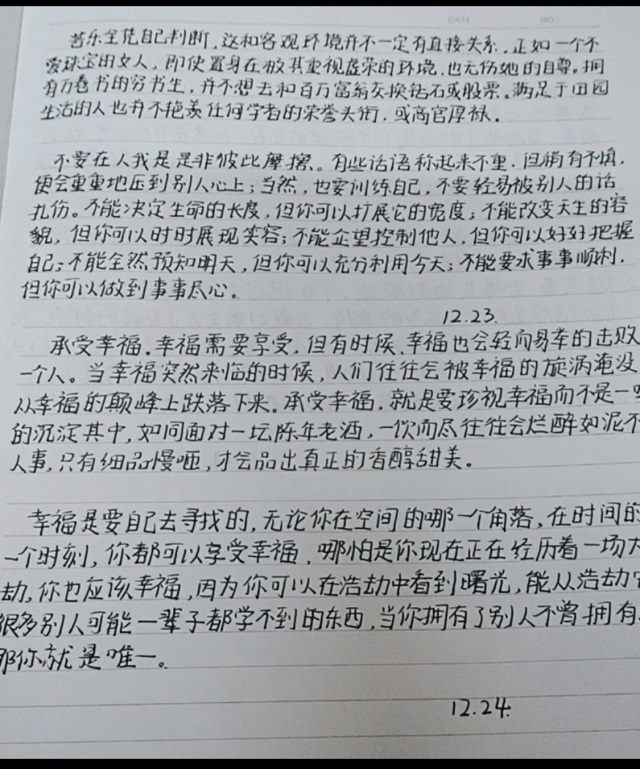 DATE NO
苦乐全凭自己判断，这和客观环境并不一定有直接关系，正如一个不
爱珠宝的女人，即使置身在极其重视虚荣的环境，也无伤她的自尊。拥
有万卷书的穷书生，并不想去和百万富翁交换钻石或股票。满足于田园
生活的人也并不艳羡任何学者的荣誉头衔，或高官厚禄。
不要在人我是是非彼此摩擦。有些话语称起来不重，但稍有不慎，
便会重重地压到别人心上；当然，也要训练自己，不要轻易被别人的话
扎伤。不能决定生命的长度，但你可以扩展它的宽度；不能改变天生的容
貌，但你可以时时展现笑容；不能企望控制他人，但你可以好好把握
自己；不能全然预知明天，但你可以充分利用今天；不能要求事事顺利，
但你可以做到事事尽心。
12.23.
承受幸福。幸福需要享受，但有时候，幸福也会轻而易举的击败
一个人。当幸福突然来临的时候，人们往往会被幸福的旋涡淹没
从幸福的颠峰上跌落下来。承受幸福，就是要珍视幸福而不是一
的沉淀其中，如同面对一坛陈年老酒，一饮而尽往往会烂醉如泥不
人事，只有细品慢咂，才会品出真正的香醇甜美。
幸福是要自己去寻找的，无论你在空间的哪一个角落，在时间的
一个时刻，你都可以享受幸福，哪怕是你现在正在经历着一场大
劫，你也应该幸福，因为你可以在浩劫中看到曙光，能从浩劫
很多别人可能一辈子都学不到的东西，当你拥有了别人不曾拥有
那你就是唯一。
12.24.